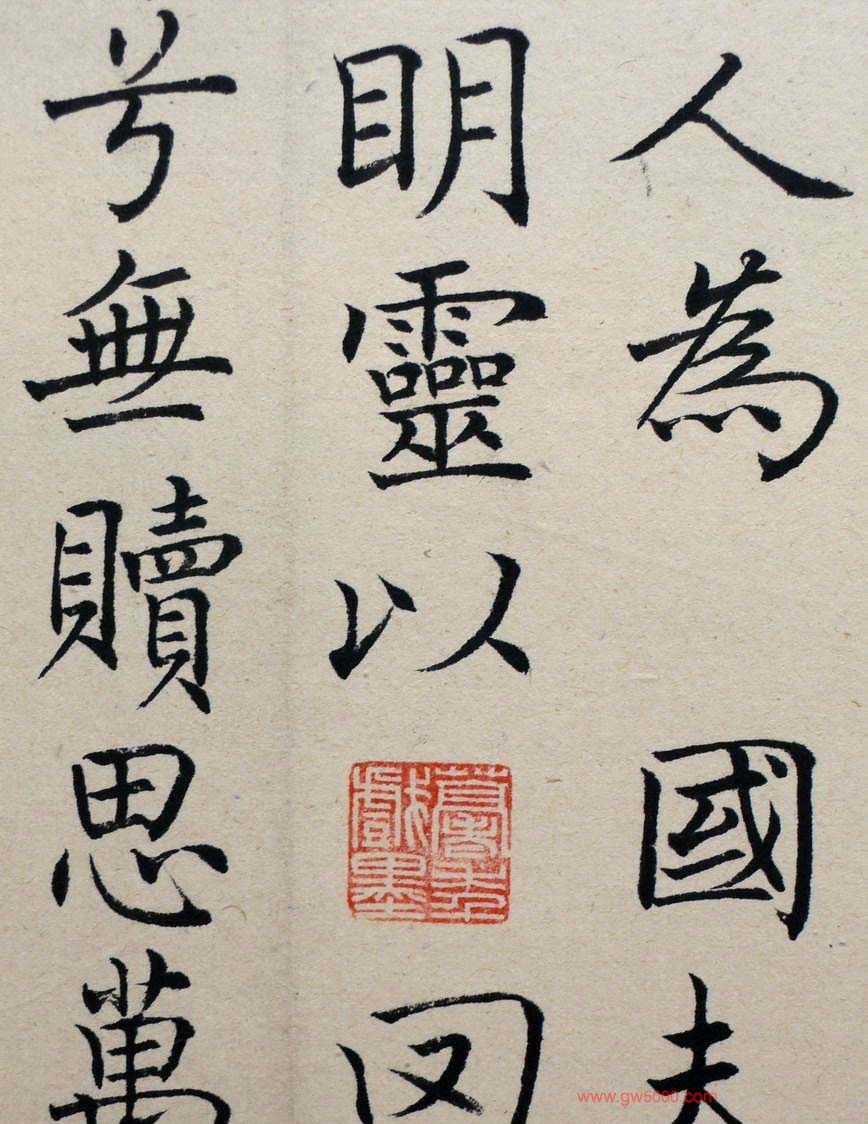 人為國夫
明靈以
兮無贖思萬
www.gw5000.com